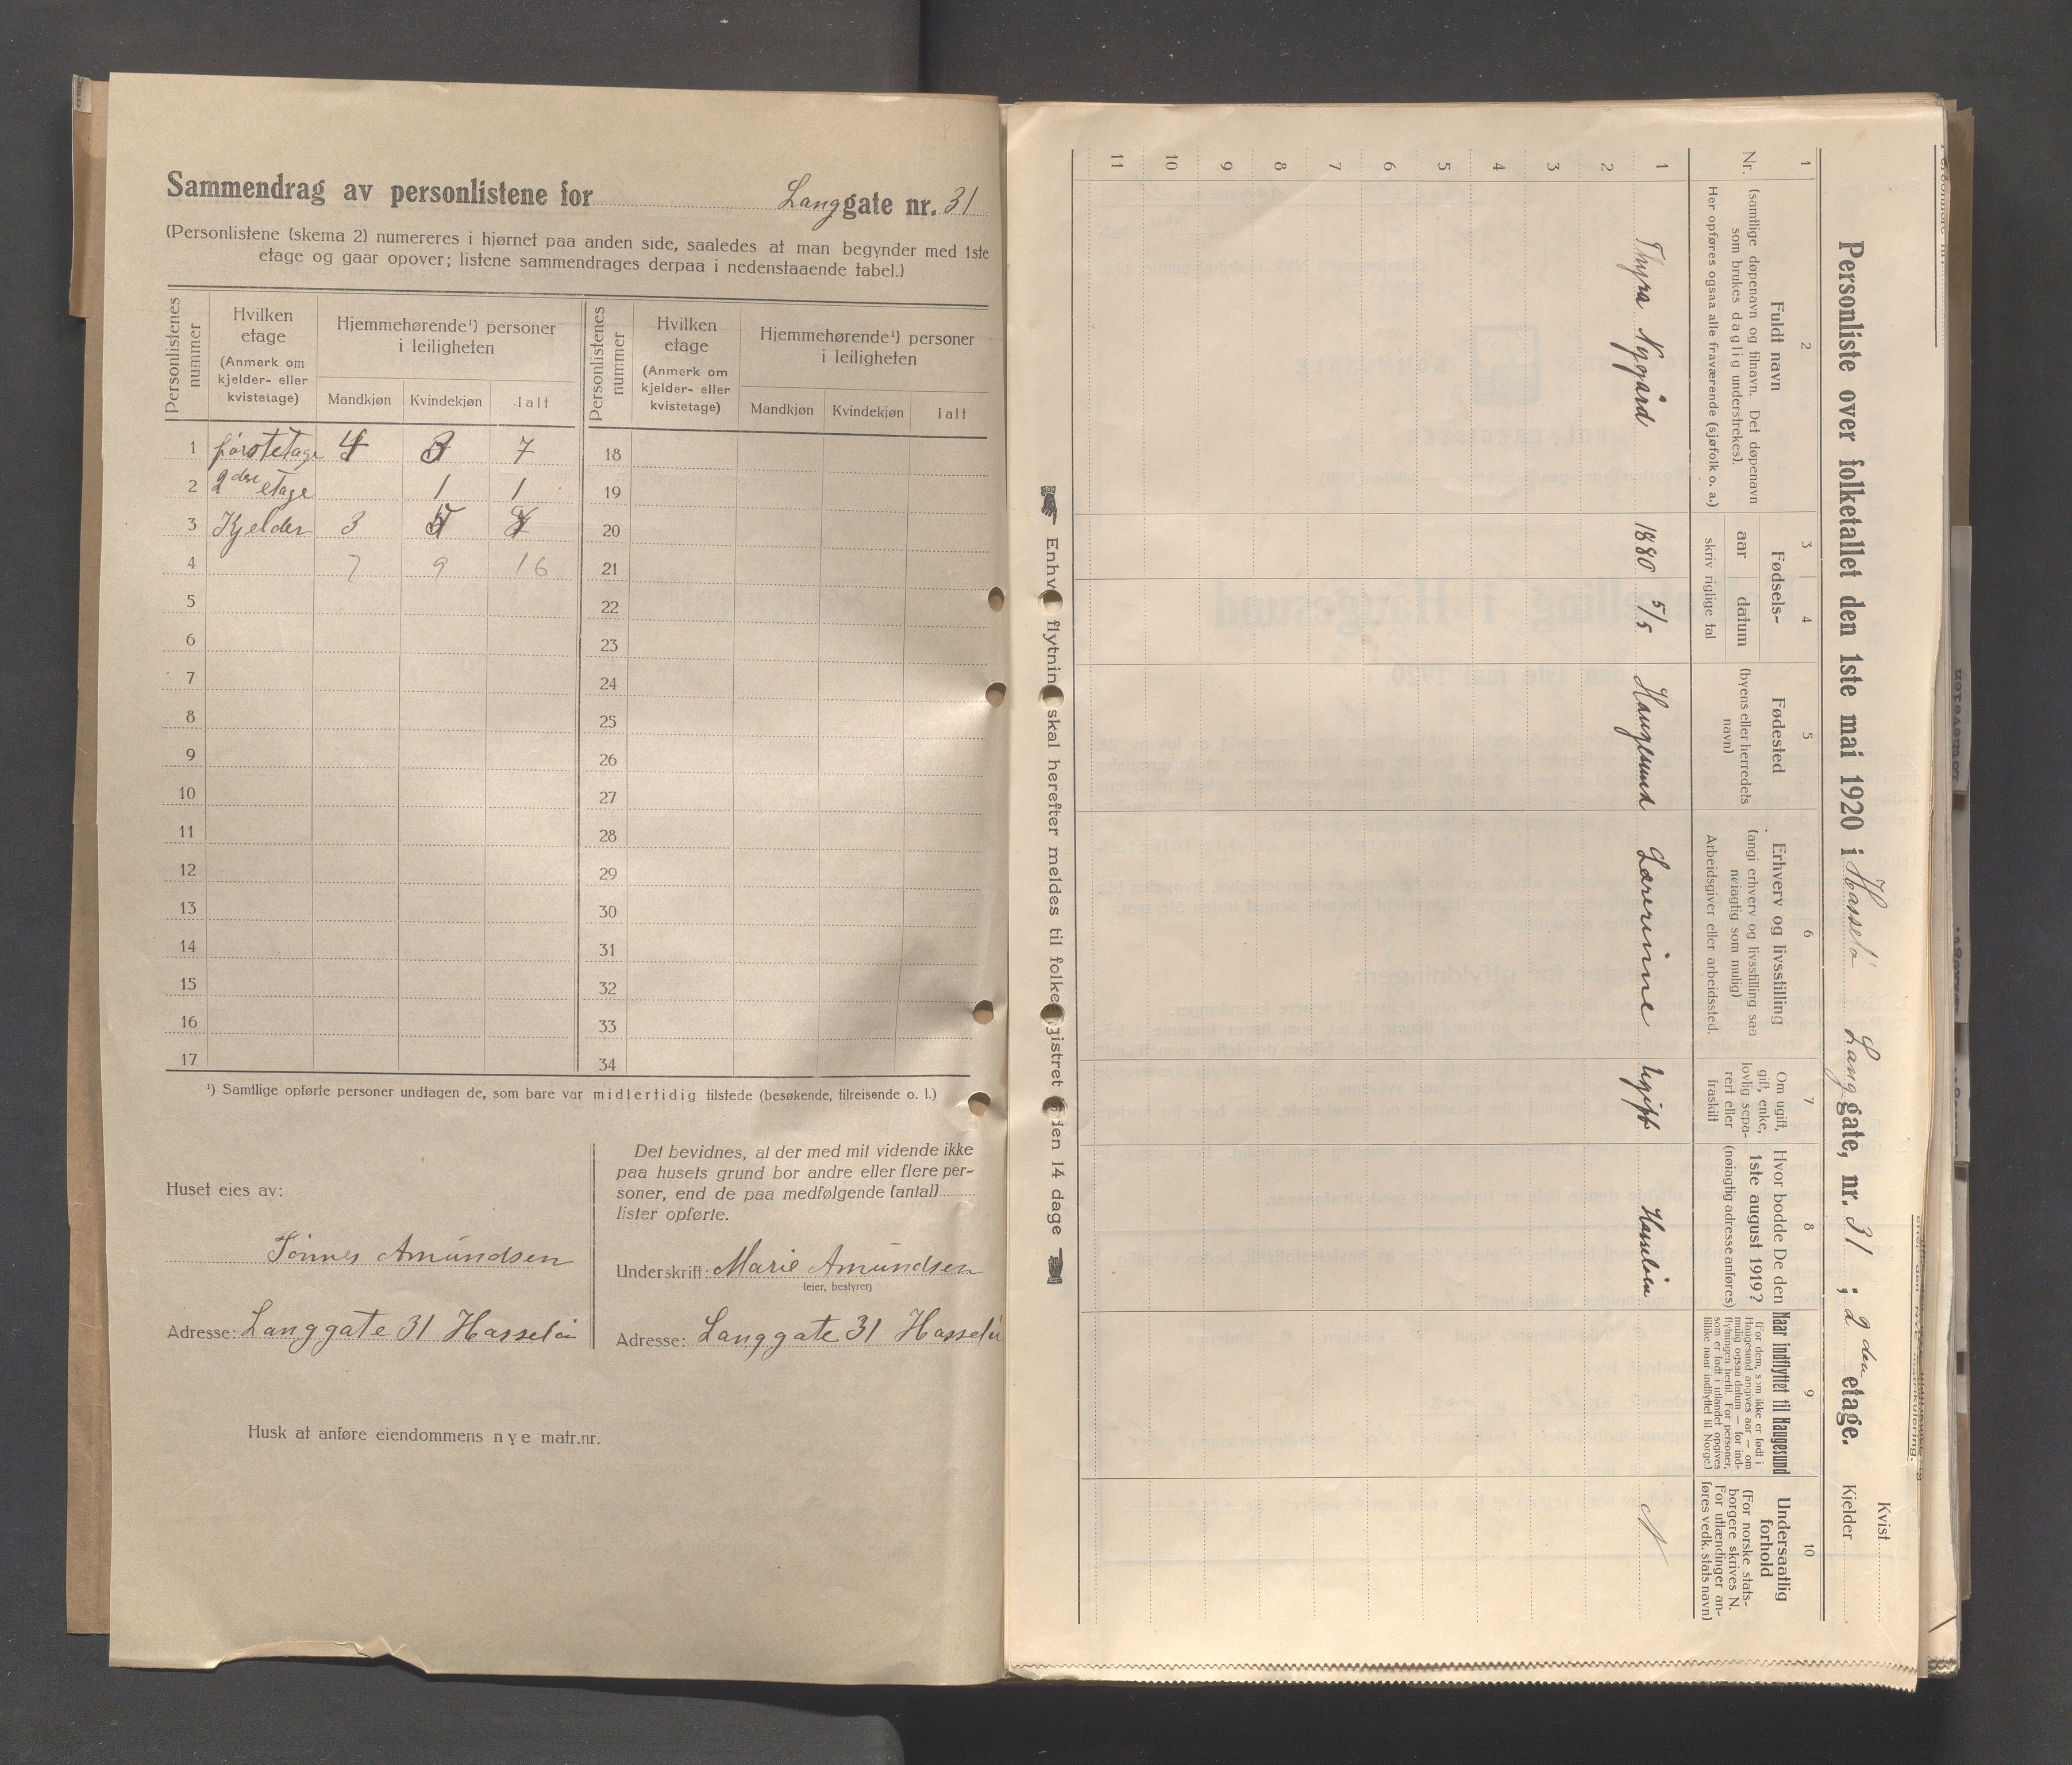 Sammendrag av personlistene for Langgate nr. 31
(Personlistene (skema 2) numereres i hjørnet paa anden side, saaledes at man begynder med 1ste
etage og gaar opover; listene sammendrages derpaa i nedenstaaende tabel.)
Personlistenes nummer
Hvilken etage
(Anmerk om kjelder- eller kvistetage)
Hjemmehørende¹) personer i leiligheten
Mandkjøn Kvindekjøn Ialt
Personlistenes nummer
Hvilken etage
(Anmerk om kjelder- eller kvistetage)
Hjemmehørende¹) personer i leiligheten
Mandkjøn Kvindekjøn Ialt
1 førstetage 4 3 7 18
2 2den etage 1 1 19
3 Kjelder 3 5 8 20
4 7 9 16 21
5 22
6 23
7 24
8 25
9 26
10 27
11 28
12 29
13 30
14 31
15 32
16 33
17 34
¹) Samtlige opførte personer undtagen de, som bare var midlertidig tilstede (besøkende, tilreisende o. l.)
Huset eies av:
Tønnes Amundsen
Adresse: Langgate 31 Hasselø
Det bevidnes, at der med mit vidende ikke
paa husets grund bor andre eller flere per-
soner, end de paa medfølgende (antal)
lister opførte.
Underskrift: Marie Amundsen
(eier, bestyrer)
Adresse: Langgate 31 Hasselø
Husk at anføre eiendommens nye matr.nr.
Kvist
Kjelder
Personliste over folketallet den 1ste mai 1920 i Hasselø Langgate, nr. 31 ; 2den etage.
1
Nr.
2
Fuldt navn
(samtlige døpenavn og tilnavn. Det døpenavn
som brukes daglig understrekes).
Her opføres ogsaa alle fraværende (sjøfolk o. a.)
3 4
Fødsels-
aar datum
skriv rigtige tal
5
Fødested
(byens eller herredets
navn)
6
Erhverv og livsstilling
(angi erhverv og livsstilling saa
nøiagtig som mulig)
Arbeidsgiver eller arbeidssted.
7
Om ugift,
gift, enke,
lovlig sepa-
rert eller
fraskilt
8
Hvor bodde De den
1ste august 1919?
(nøiagtig adresse anføres)
9
Naar indflyttet til Haugesund
(For dem, som ikke er født i
Haugesund angives aar — om
mulig ogsaa datum — for ind-
flytningen hertil. For personer,
som er født i utlandet opgives
tillike naar indflyttet til Norge)
10
Undersaatlig
forhold
(For norske stats-
borgere skrives N.
For utlændinger an-
føres vedk. stats navn)
1 Thyra Nygård 1880 5/5 Haugesund Lærerinne Ugift Hasseløen N
2
3
4
5
6
7
8
9
10
11
Enhver flytning skal herefter meldes til folkeregistret inden 14 dage